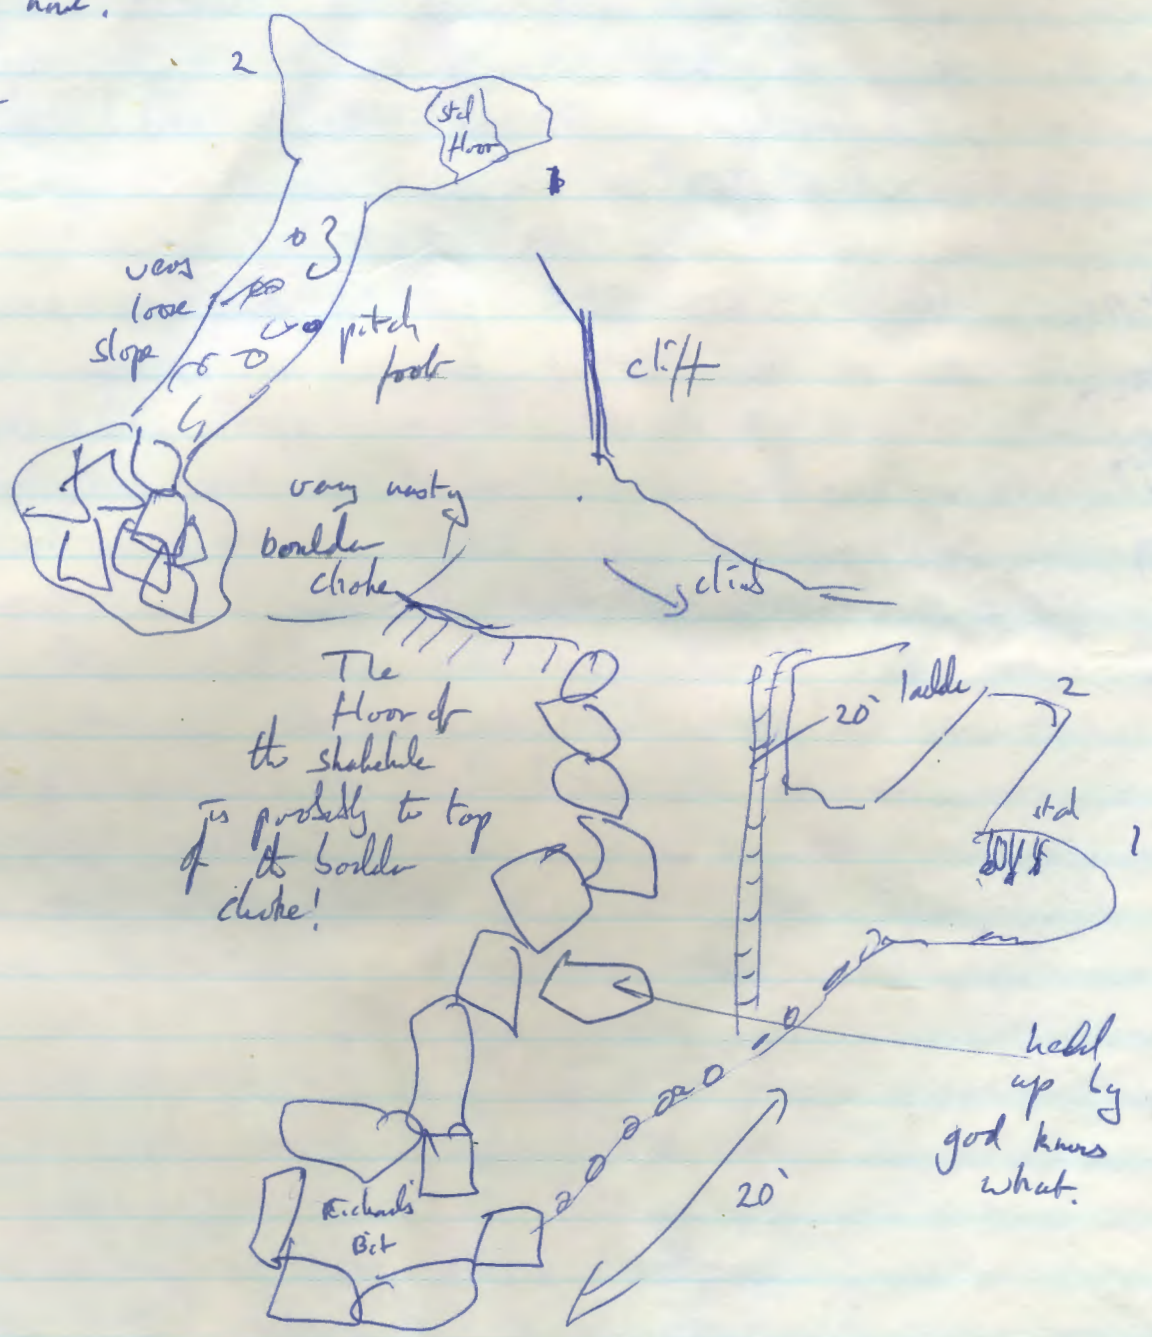 2
stal
floor
1
very
loose
slope
pitch
foot
cliff
very nasty
boulder
choke
climb
The
floor of
the shakehole
is probably the top
of the boulder
choke!
20' ladder
2
stal
1
held
up by
god knows
what.
20'
Richard's
Bit